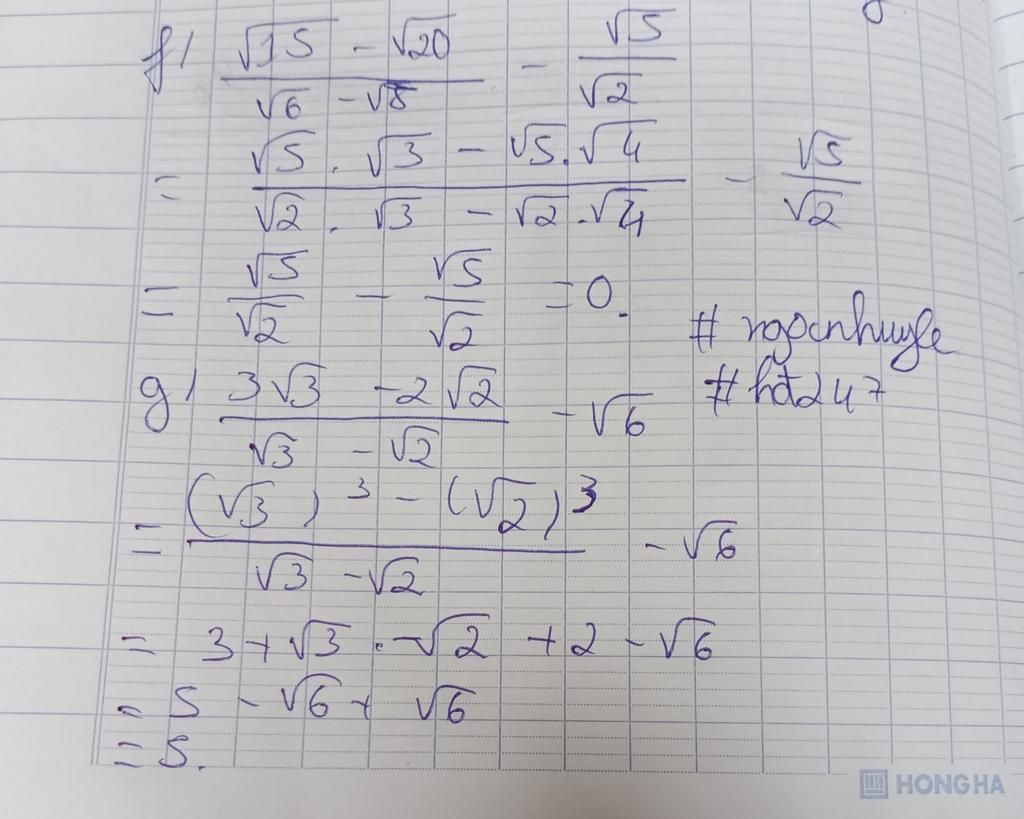 f) (√15 - √20)/(√6 - √8) - √5/√2
= (√5 . √3 - √5 . √4)/(√2 . √3 - √2 . √4) - √5/√2
= √5/√2 - √5/√2 = 0.
# ngocnhuye
# hđ247
g) (3√3 - 2√2)/(√3 - √2) - √6
= ((√3)³ - (√2)³)/(√3 - √2) - √6
= 3 + √3 . √2 + 2 - √6
= 5 - √6 + √6
= 5.
HONG HA